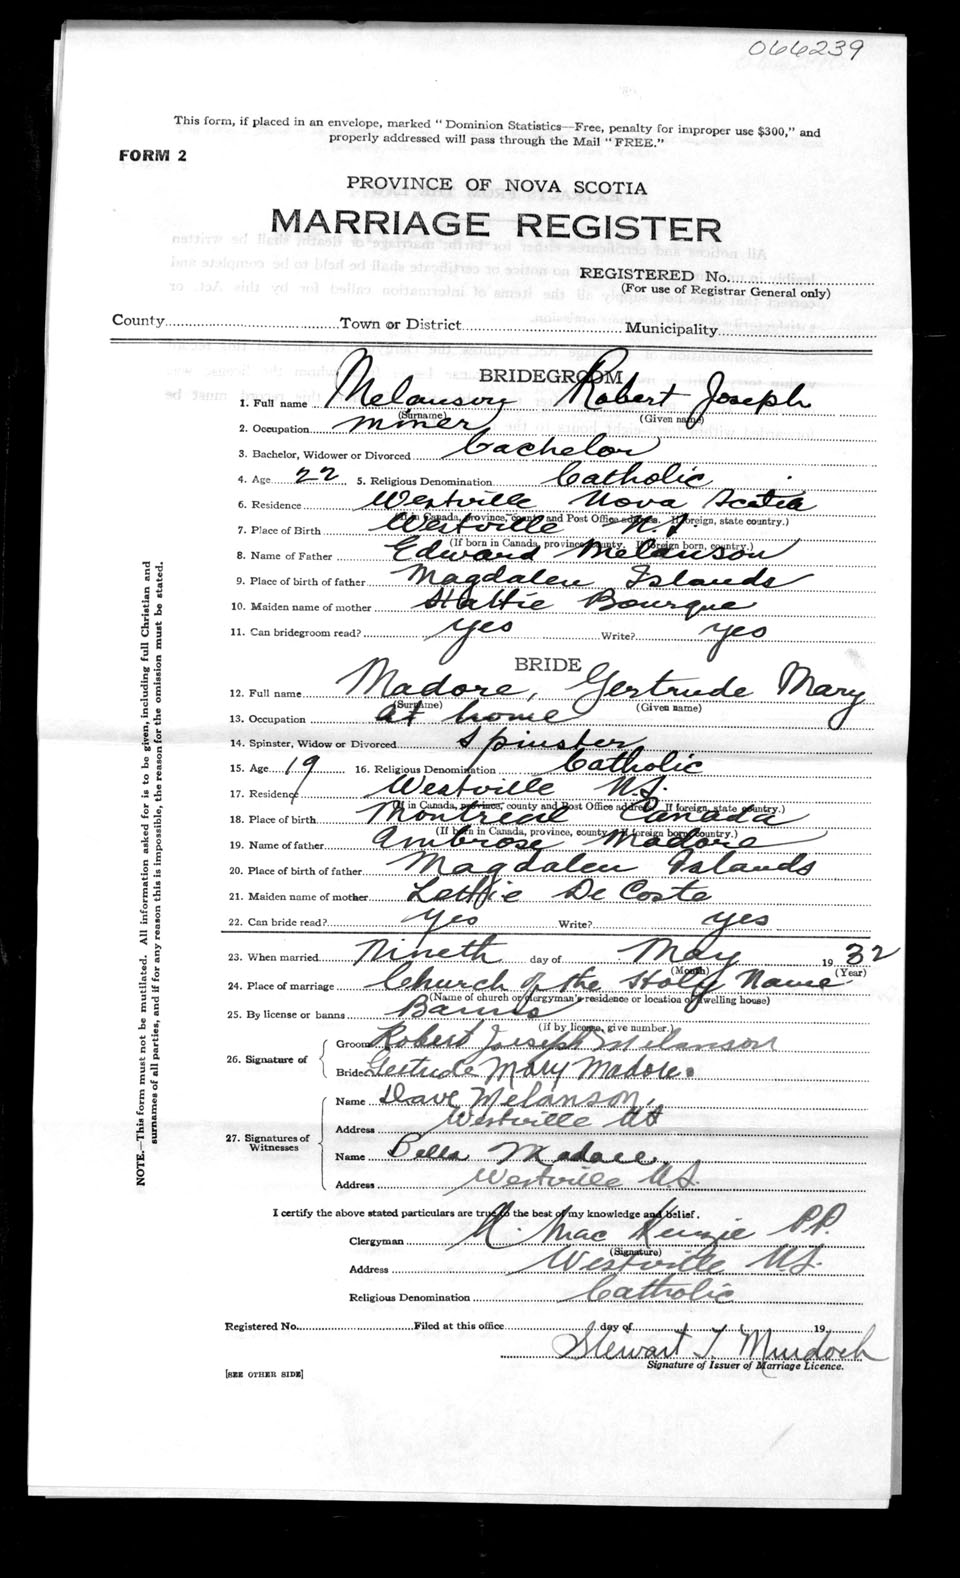 066239
This form, if placed in an envelope, marked "Dominion Statistics—Free, penalty for improper use $300," and
properly addressed will pass through the Mail "FREE."
FORM 2
PROVINCE OF NOVA SCOTIA
MARRIAGE REGISTER
REGISTERED No.
(For use of Registrar General only)
County Town or District Municipality
BRIDEGROOM
1. Full name Melanson Robert Joseph
(Surname) (Given name)
2. Occupation miner
3. Bachelor, Widower or Divorced Bachelor
4. Age 22 5. Religious Denomination Catholic
6. Residence Westville Nova Scotia
(If in Canada, province, county and Post Office address. If foreign, state country.)
7. Place of Birth Westville N S
(If born in Canada, province, county. If foreign born, country.)
8. Name of Father Edward Melanson
9. Place of birth of father Magdalen Islands
10. Maiden name of mother Hattie Bourque
11. Can bridegroom read? yes Write? yes
BRIDE
12. Full name Madore, Gertrude Mary
(Surname) (Given name)
13. Occupation at home
14. Spinster, Widow or Divorced Spinster
15. Age 19 16. Religious Denomination Catholic
17. Residence Westville N.S.
(If in Canada, province, county and Post Office address. If foreign, state country.)
18. Place of birth Montreal Canada
(If born in Canada, province, county. If foreign born, country.)
19. Name of father Ambrose Madore
20. Place of birth of father Magdalen Islands
21. Maiden name of mother Lettie De Coste
22. Can bride read? yes Write? yes
23. When married Nineth day of May 1932
(Month) (Year)
24. Place of marriage Church of the Holy Name
(Name of church or clergyman's residence or location of dwelling house)
25. By license or banns Banns
(If by license, give number.)
26. Signature of
Groom Robert Joseph Melanson
Bride Gertrude Mary Madore.
27. Signatures of Witnesses
Name Dave Melanson,
Address Westville N S
Name Bella Madore
Address Westville N.S.
I certify the above stated particulars are true to the best of my knowledge and belief.
Clergyman Mac Kenzie P.P.
(Signature)
Address Westville N.S.
Religious Denomination Catholic
Registered No. Filed at this office day of 19
Stewart T Murdoch
Signature of Issuer of Marriage Licence.
[SEE OTHER SIDE]
NOTE.—This form must not be mutilated. All information asked for is to be given, including full Christian and
surnames of all parties, and if for any reason this is impossible, the reason for the omission must be stated.